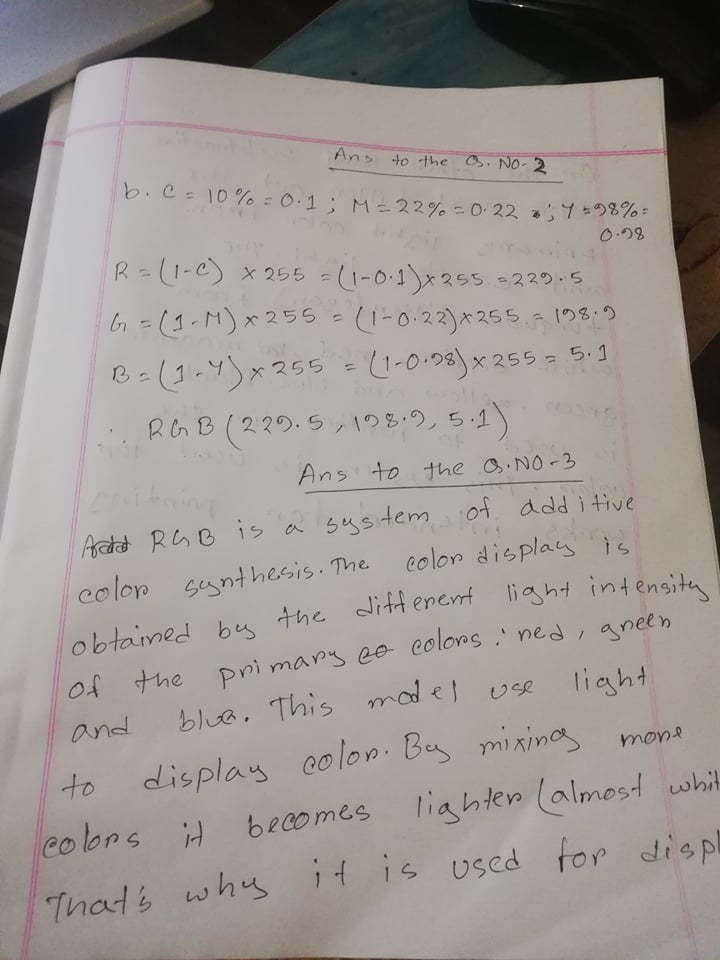 Ans to the Q. NO-2
b. C = 10% = 0.1 ; M = 22% = 0.22 ; Y = 98% =
0.98
R = (1-C) × 255 = (1-0.1) × 255 = 229.5
G = (1-M) × 255 = (1-0.22) × 255 = 198.9
B = (1-Y) × 255 = (1-0.98) × 255 = 5.1
∴ RGB (229.5, 198.9, 5.1)
Ans to the Q.NO-3
RGB is a system of additive
color synthesis. The color display is
obtained by the different light intensity
of the primary colors : red, green
and blue. This model use light
to display color. By mixing more
colors it becomes lighter (almost whit
That's why it is used for displ